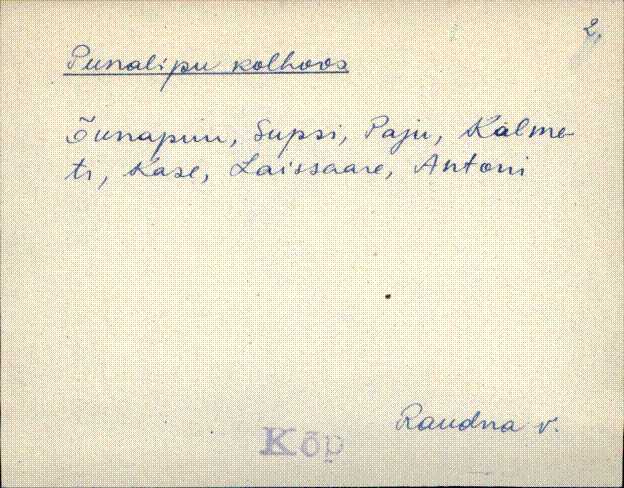 2.
Punalipu kolhoos
Õunapuu, Supsi, Paju, Kalme-
ti, Kase, Laissaare, Antoni
Raudna v.
Kõp